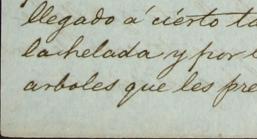 llegado á cierto ta
la helada y por l
arboles que les pre